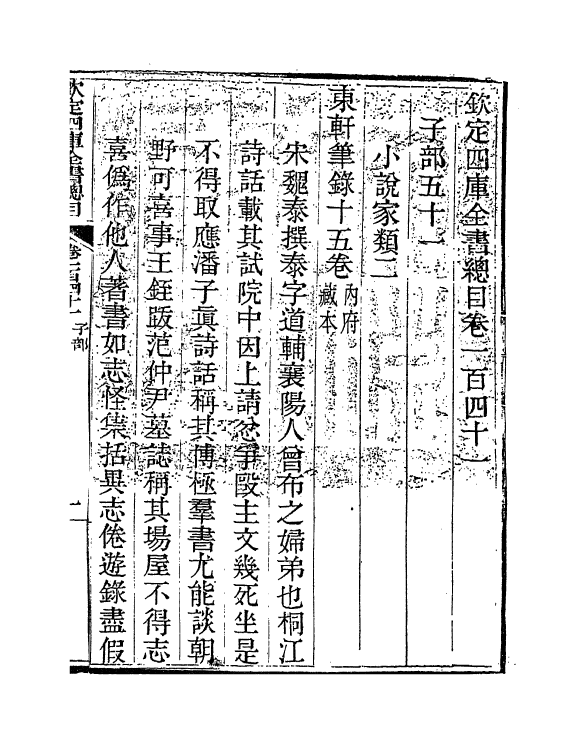 欽定四庫全書總目卷一百四十一
子部五十一
小說家類二
東軒筆錄十五卷內府藏本
宋魏泰撰泰字道輔襄陽人曾布之婦弟也桐江
詩話載其試院中因上請忿爭毆主文幾死坐是
不得取應潘子眞詩話稱其博極羣書尤能談朝
野可喜事王銍跋范仲尹墓誌稱其場屋不得志
喜僞作他人著書如志怪集括異志倦遊錄盡假
欽定四庫全書總目 卷一百四十一 子部 一